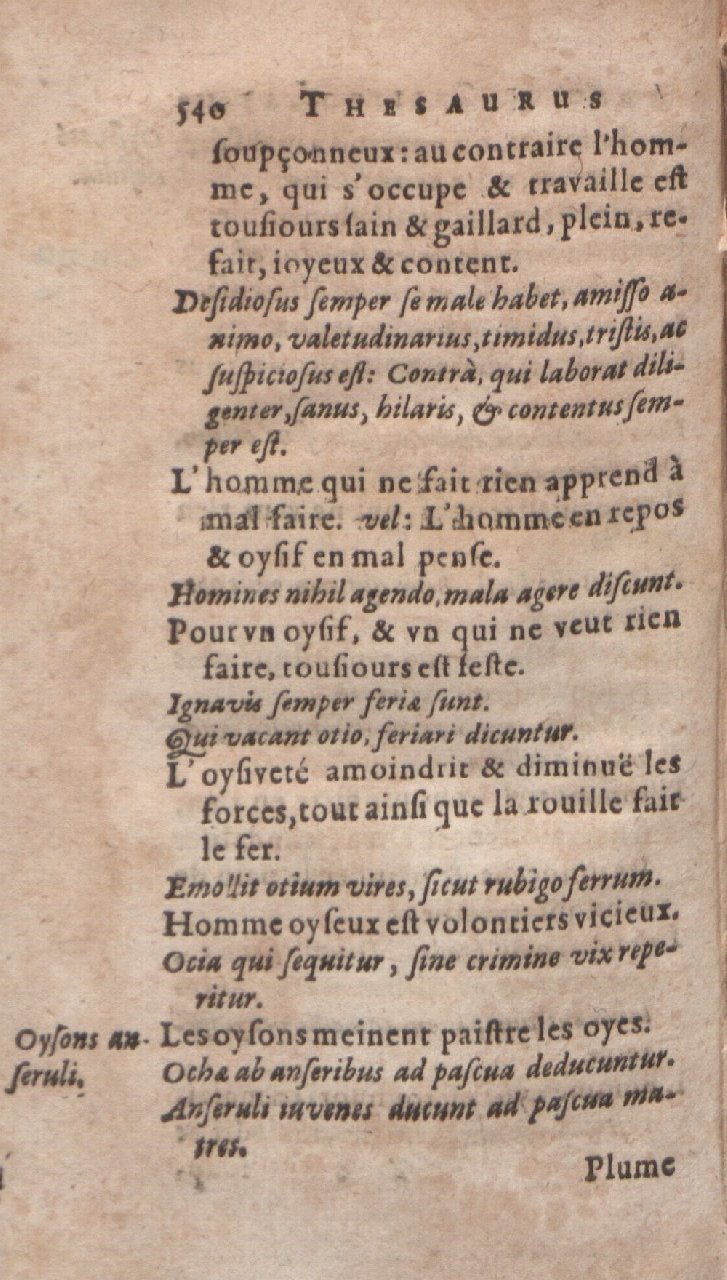 540 THESAURUS
ſoupçonneux: au contraire l'hom-
me, qui s'occupe & travaille eſt
touſiours ſain & gaillard, plein, re-
fait, ioyeux & content.
Deſidioſus ſemper ſe male habet, amiſſo a-
nimo, valetudinarius, timidus, triſtis, ac
ſuſpicioſus eſt: Contrà, qui laborat dili-
genter, ſanus, hilaris, & contentus ſem-
per eſt.
L'homme qui ne fait rien apprend à
mal faire. vel: L'homme en repos
& oyſif en mal penſe.
Homines nihil agendo, mala agere diſcunt.
Pour vn oyſif, & vn qui ne veut rien
faire, touſiours eſt feſte.
Ignavis ſemper feriæ ſunt.
Qui vacant otio, feriari dicuntur.
L'oyſiveté amoindrit & diminuë les
forces, tout ainſi que la rouille fait
le fer.
Emollit otium vires, ſicut rubigo ferrum.
Homme oyſeux eſt volontiers vicieux.
Ocia qui ſequitur, ſine crimine vix repe-
ritur.
Oyſons an- Les oyſons meinent paiſtre les oyes.
ſeruli. Ochæ ab anſeribus ad paſcua deducuntur.
Anſeruli iuvenes ducunt ad paſcua ma-
tres.
Plume